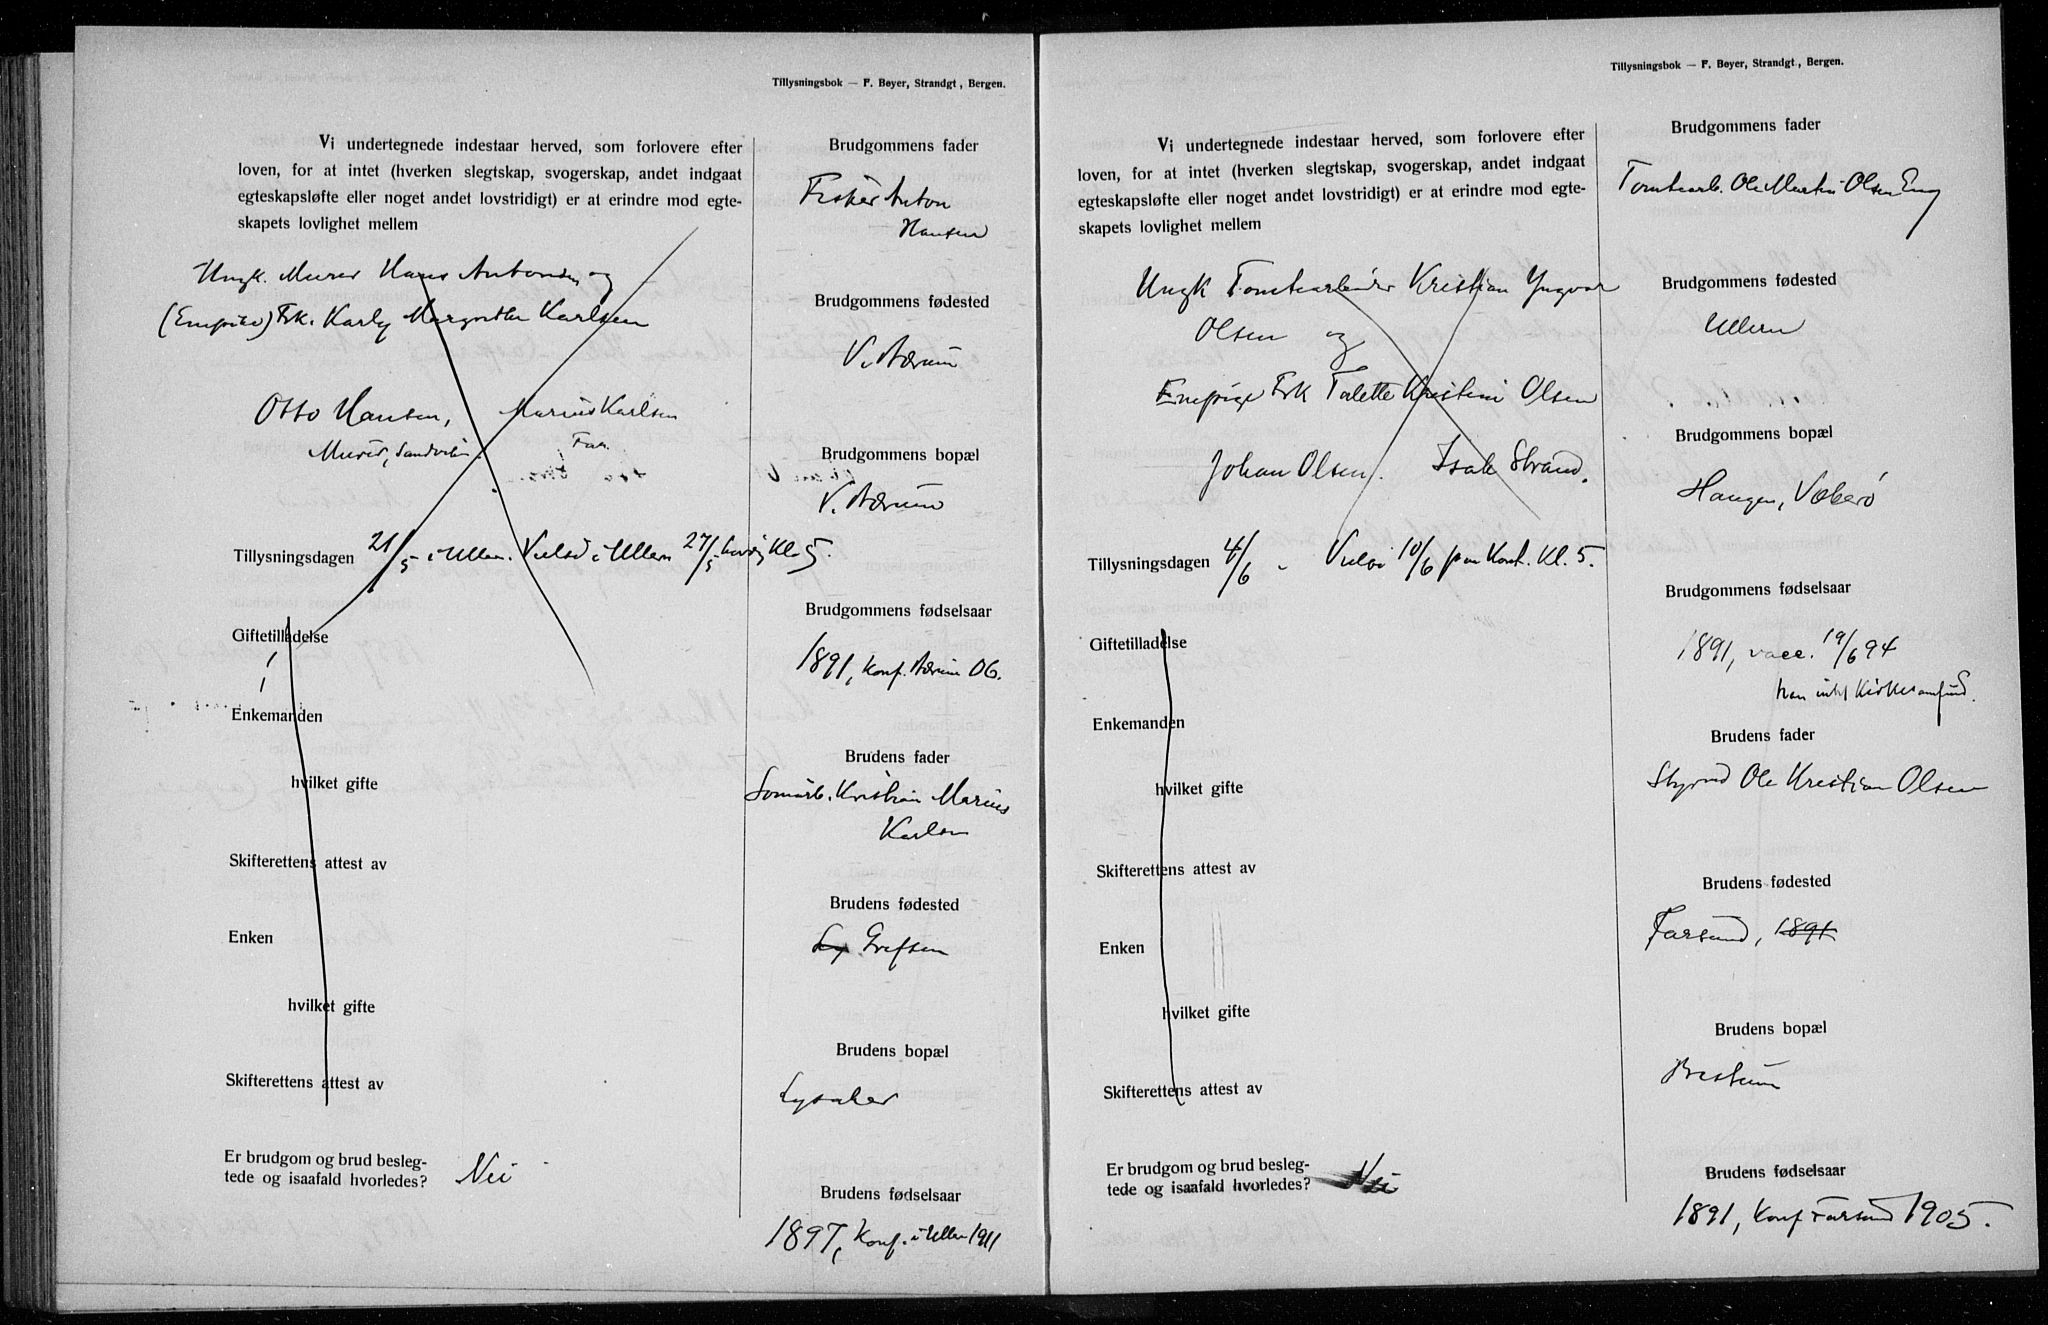 Tillysningsbok — F. Bøyer, Strandgt., Bergen.
Vi undertegnede indestaar herved, som forlovere efter
loven, for at intet (hverken slegtskap, svogerskap, andet indgaat
egteskapsløfte eller noget andet lovstridigt) er at erindre mod egte-
skapets lovlighet mellem
Ungk. Murer Hans Antonsen og
(Enepike) Frk. Karly Margrethe Karlsen
Otto Hansen, Marius Karlsen
Murer, Sandviken. Far.
Tillysningsdagen 21/5 i Ullern. Vielse i Ullern 27/5 Kl. 5.
Giftetilladelse
Enkemanden
hvilket gifte
Skifterettens attest av
Enken
hvilket gifte
Skifterettens attest av
Er brudgom og brud besleg-
tede og isaafald hvorledes? Nei
Brudgommens fader
Fisker Anton
Hansen
Brudgommens fødested
V. Bærum
Brudgommens bopæl
V. Bærum
Brudgommens fødselsaar
1891, Konf. Bærum 06.
Brudens fader
Kristian Marius
Karlsen
Brudens fødested
Ly Grefsen
Brudens bopæl
Lysaker
Brudens fødselsaar
1897, Konf. i Ullern 1911
Tillysningsbok — F. Bøyer, Strandgt., Bergen.
Vi undertegnede indestaar herved, som forlovere efter
loven, for at intet (hverken slegtskap, svogerskap, andet indgaat
egteskapsløfte eller noget andet lovstridigt) er at erindre mod egte-
skapets lovlighet mellem
Ungk Tomtearbeider Kristian Yngvar
Olsen og
Enepige Frk Talette Kristine Olsen
Johan Olsen. Isak Strand.
Tillysningsdagen 4/6. Vielse 10/6 paa Kont. Kl. 5.
Giftetilladelse
Enkemanden
hvilket gifte
Skifterettens attest av
Enken
hvilket gifte
Skifterettens attest av
Er brudgom og brud besleg-
tede og isaafald hvorledes? Nei
Brudgommens fader
Tomtearb. Ole Martin Olsen Eng
Brudgommens fødested
Ullern
Brudgommens bopæl
Haugen, Vækerø
Brudgommens fødselsaar
1891, vacc. 19/6 94
Brudens fader
Styrmd Ole Kristian Olsen
Brudens fødested
Farsund, 1891
Brudens bopæl
Bestum
Brudens fødselsaar
1891, Konf. Farsund 1905.